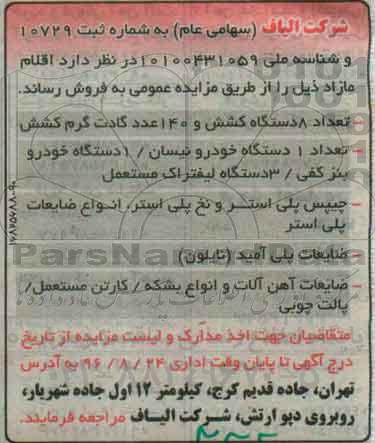 شرکت الیاف (سهامی عام) به شماره ثبت ۱۰۷۲۹
و شناسه ملی ۱۰۱۰۰۴۳۱۰۵۹ در نظر دارد اقلام
مازاد ذیل را از طریق مزایده عمومی به فروش رساند.
– تعداد ۸ دستگاه کشش و ۱۴۰ عدد گادت گرم کشش
– تعداد ۱ دستگاه خودرو نیسان / ۱ دستگاه خودرو
بنز کفی / ۳ دستگاه لیفتراک مستعمل
– چیپس پلی استر و نخ پلی استر، انواع ضایعات
پلی استر
– ضایعات پلی آمید (نایلون)
– ضایعات آهن آلات و انواع بشکه / کارتن مستعمل/
پالت چوبی
متقاضیان جهت اخذ مدارک و لیست مزایده از تاریخ
درج آگهی تا پایان وقت اداری ۲۴ / ۸ / ۹۶ به آدرس
تهران، جاده قدیم کرج، کیلومتر ۱۲ اول جاده شهریار،
روبروی دپو ارتش، شرکت الیاف مراجعه فرمایند.
ParsNamadData